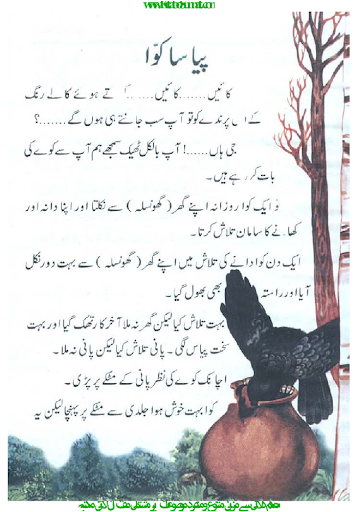 پیاسا کوّا
کائیں.......کائیں....... تے ہوئے کالے رنگ
کے پرندے کو تو آپ سب جانتے ہی ہوں گے.......؟
جی ہاں......! آپ بالکل ٹھیک سمجھے ہم آپ سے کوے کی
بات کر رہے ہیں۔
ایک کوا روزانہ اپنے گھر (گھونسلہ) سے نکلتا اور اپنا دانہ اور
کھانے کا سامان تلاش کرتا۔
ایک دن کوا دانے کی تلاش میں اپنے گھر (گھونسلہ) سے بہت دور نکل
آیا اور راستہ بھی بھول گیا۔
بہت تلاش کیا لیکن گھر نہ ملا آخر کار تھک گیا اور بہت
سخت پیاس لگی۔ پانی تلاش کیا لیکن پانی نہ ملا۔
اچانک کوے کی نظر پانی کے مٹکے پر پڑی۔
کوا بہت خوش ہوا جلدی سے مٹکے پر پہنچا لیکن یہ